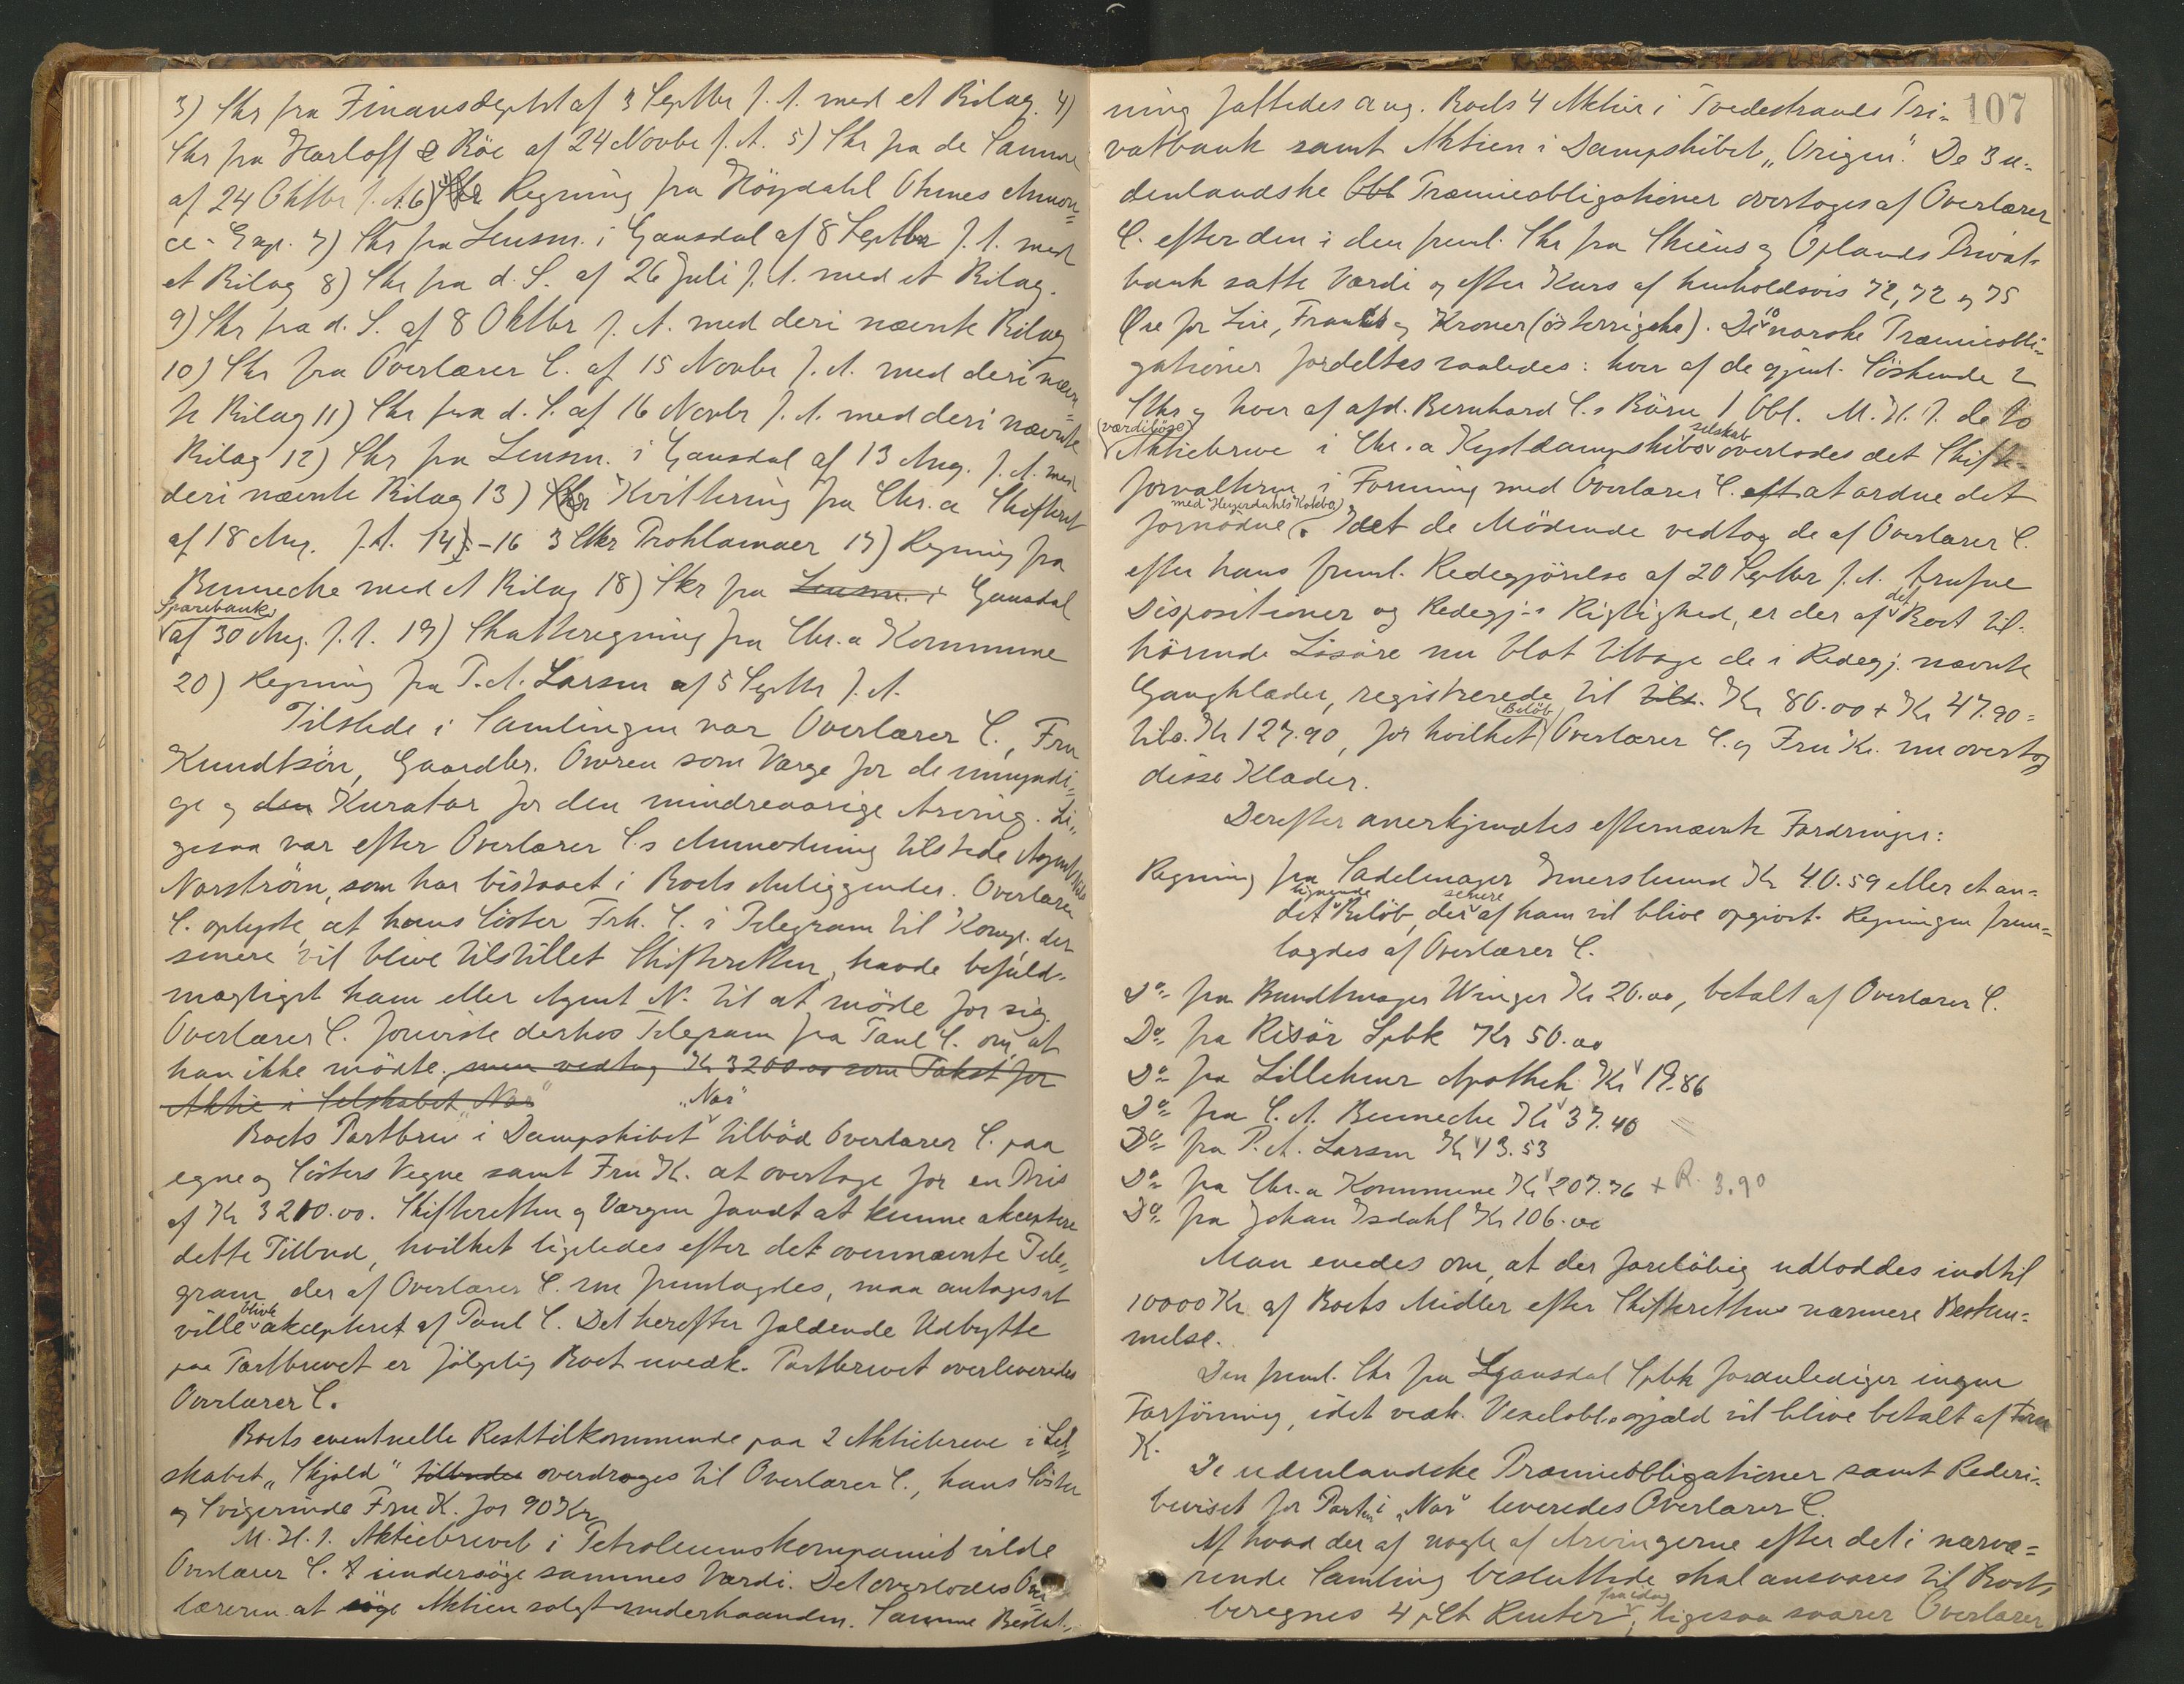 3) Skr fra Finansdeptet af 3 Septbr f. A. med et Bilag. 4)
Skr fra Harloff & Böe af 24 Novbr f. A. 5) Skr fra de Samme
af 24 Oktbr f. A. 6) Regning fra Höydahl Ohmes Annon=
ce-Exp. 7) Skr fra Lensm. i Gausdal af 8 Septbr f. A. med
et Bilag 8) Skr fra d. S. af 26 Juli f. A. med et Bilag.
9) Skr fra d. S. af 8 Oktbr f. A. med deri nævnte Bilag
10) Skr fra Overlærer C. af 15 Novbr f. A. med deri nævn=
te Bilag 11) Skr fra d. S. af 16 Novbr f. A. med deri nævnte
Bilag 12) Skr fra Lensm. i Gausdal af 13 Aug. f. A. med
deri nævnte Bilag 13) Kvittering fra Chr.a Skifteret
af 18 Aug. f. A. 14)-16 3 Stkr Proklamaer 17) Regning fra
Bennecke med et Bilag 18) Skr fra Lensm. i Gausdal
Sparebank
af 30 Aug. f. A. 19) Skatteregning fra Chr.a Kommune
20) Regning fra P. A. Larsen af 5 Septbr f. A.
Tilstede i Samlingen var Overlærer C., Fru
Knudtsön, Gaardbr. Owren som Værge for de umyndi=
ge og den Kurator for den mindreaarige Arving. Li=
gesaa var efter Overlærer C.s Anmodning tilstede Agent
Norström, som har bistaaet i Boets Anliggender. Overlærer
C. oplyste, at hans Söster Frk. C. i Telegram til Komp. der
senere vil blive tilstillet Skifteretten, havde befuld-
mægtiget ham eller Agent N. til at möde for sig.
Overlærer C. foreviste derhos Telegram fra Paul C. om, at
han ikke mödte, men vedtog Kr 3200.00 som Takst for
Aktie i Selskabet "Nor"
"Nor"
Boets Partbrev i Dampskibet tilböd Overlærer C. paa
egne og Sösters Vegne samt Fru K. at overtage for en Pris
af Kr 3200.00. Skifteretten og Værgen fandt at kunne akceptere
dette Tilbud, hvilket ligeledes efter det ovennævnte Tele=
gram, der af Overlærer C. nu fremlagdes, maa antages at
ville blive akcepteret af Paul C. Det herefter faldende Udbytte
paa Partbrevet er fölgelig Boet uvedk. Partbrevet overleveredes
Overlærer C.
Boets eventuelle Resttilkommende paa 2 Aktiebreve i Sel=
skabet "Skjold" tilbudes overdroges til Overlærer C., hans Söster
og Svigerinde Fru K. for 90 Kr
M. H. t. Aktiebrevet i Petroleumskompaniet vilde
Overlærer C. undersöge sammes Værdi. Det overlodes Over
læreren at söge Aktien solgt underhaanden. Samme Beslut=
107
ning fattedes ang. Boets 4 Aktier i Tvedestrands Pri-
vatbank samt Aktien i Dampskibet "Origen". De 3 u-
denlandske Obl Præmieobligationer overtoges af Overlærer
C. efter den i den freml. Skr fra Skiens og Oplands Privat-
bank satte Værdi og efter Kurs af henholdsvis 72, 72 og 75
Öre for Lire, Francs og Kroner (österrigske). De 10 norske Præmieobli-
gationer fordeltes saaledes: hver af de gjenl. Söskende 2
Stkr og hver af afd. Bernhard C.s Börn 1 Obl. M. H. t. de to
(værdilöse) selskab
Aktiebreve i Chr.a Kystdampskibs overlodes det Skifte-
forvalteren i Forening med Overlærer C. at ordne det
med Heyerdahls Kokbog
fornödne. Idet de Mödende vedtog de af Overlærer C.
efter hans freml. Redegjörelse af 20 Septbr f. A. trufne
Dispositioner og Redegj.s Rigtighed, er der af det Boet til-
hörende Lösöre nu blot tilbage de i Redegj. nævnte
Gangklæder, registrerede til Kr 80.00 + Kr 47.90 =
Beløb
tils. Kr 127.90, for hvilket Overlærer C. og Fru K. nu overtog
disse Klæder.
Derefter anerkjendtes efternævnte Fordringer:
Regning fra Sadelmager Emerslund Kr 40.59 eller et an=
lignende senere
det Belöb, der af ham vil blive opgivet. Regningen frem=
lagdes af Overlærer C.
Do fra Bundtmager Winger Kr 26.00, betalt af Overlærer C.
Do fra Risör Spbk Kr 50.00
Do fra Lillehmr Apothek Kr 19.86
Do fra C. A. Bennecke Kr 37.40
Do fra P. A. Larsen Kr 13.53
Do fra Chr.a Kommune Kr 207.76 + R. 3.90
Do fra Johan Isdahl Kr 106.00
Man enedes om, at der foreløbig udloddes indtil
10000 Kr af Boets Midler efter Skifterettens nærmere Bestem=
melse.
Den freml. Skr fra Gausdal Spbk foranlediger ingen
Forföining, idet vedk. Vexelobl.sgjæld vil blive betalt af Fru
K.
De udenlandske Præmieobligationer samt Rederi-
beviset for Parten i "Nor" leveredes Overlærer C.
Af hvad der af nogle af Arvingerne efter det i nærvæ=
rende Samling besluttede skal ansvares til Boet
fra idag
beregnes 4 pCt Renter, ligesaa svarer Overlærer